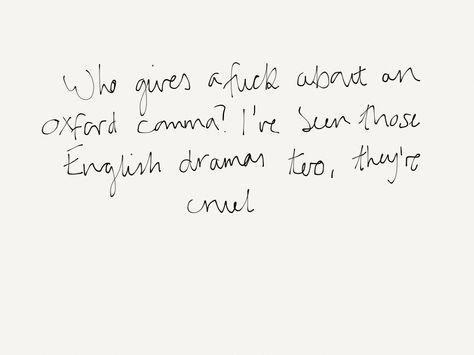 Who gives a fuck about an
Oxford comma? I've seen those
English dramas too, they're
cruel